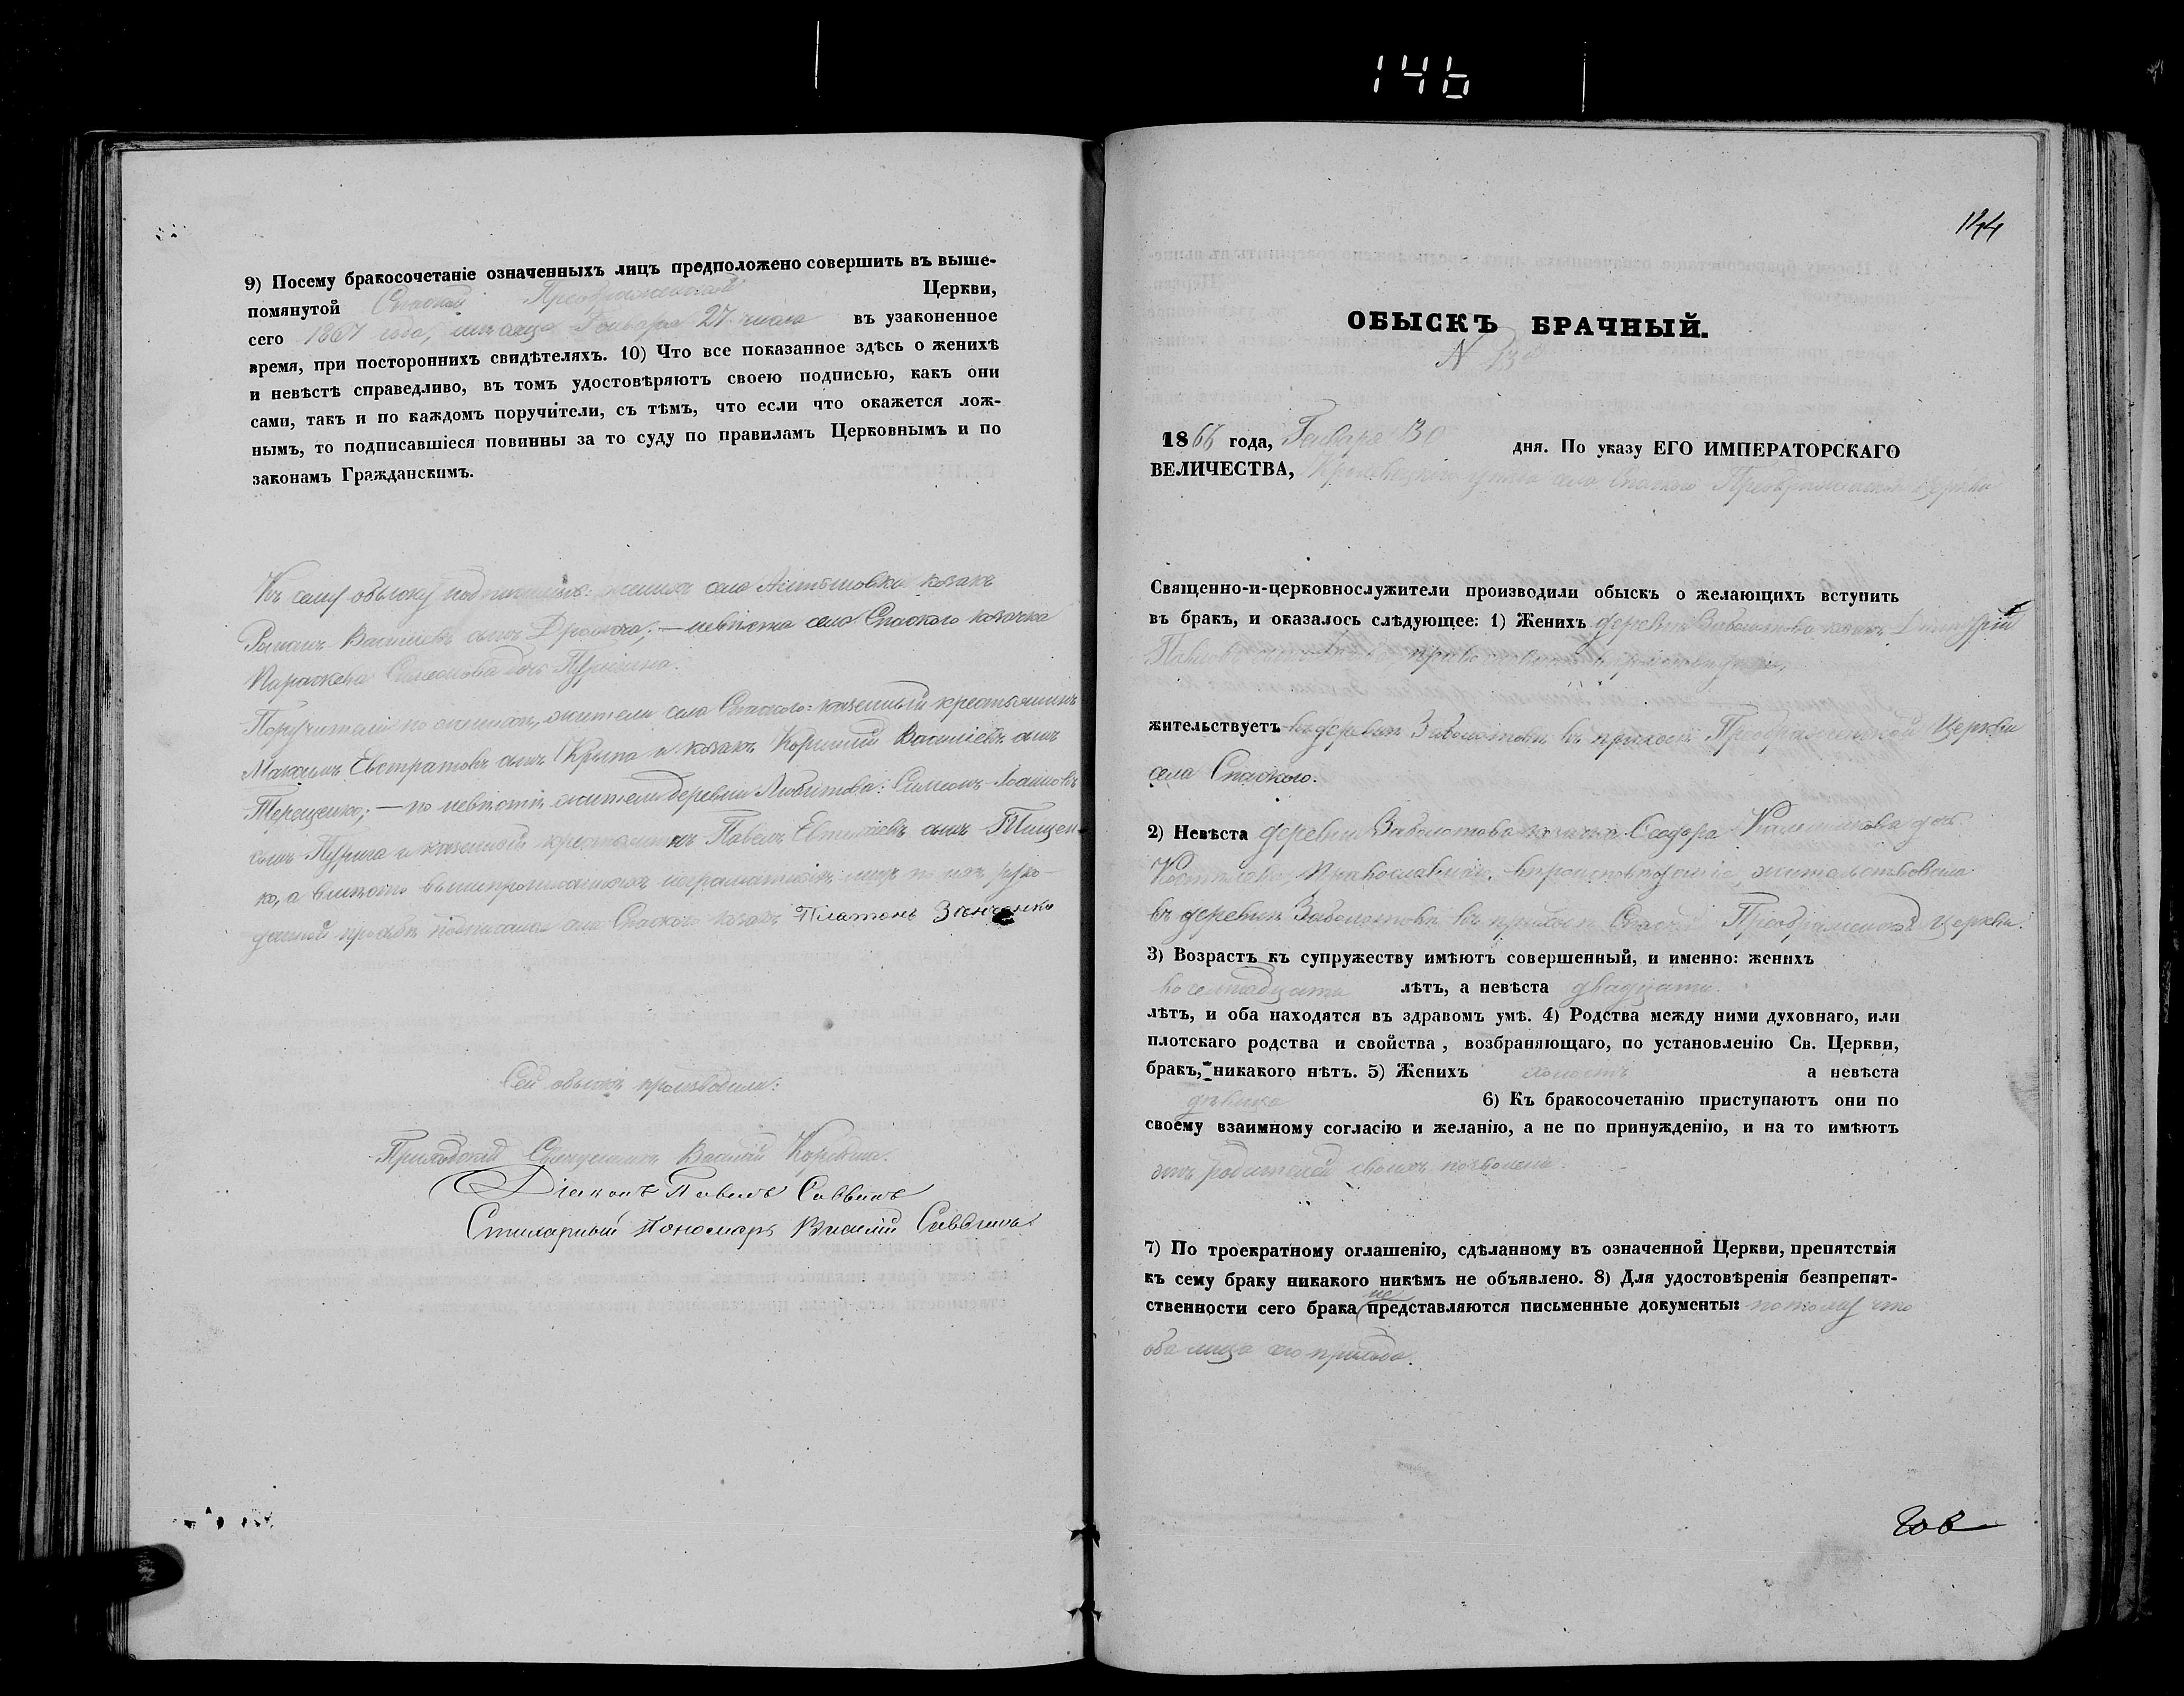 146
9) Посему бракосочетаніе означенныхъ лицъ предположено совершить въ выше-
помянутой Спаской Преображенской Церкви,
сего 1867 года, мѣсяца Генваря 27 числа въ узаконенное
время, при постороннихъ свидѣтеляхъ. 10) Что все показанное здѣсь о женихѣ
и невѣстѣ справедливо, въ томъ удостовѣряютъ своею подписью, какъ они
сами, такъ и по каждомъ поручители, съ тѣмъ, что если что окажется лож-
нымъ, то подписавшіеся повинны за то суду по правиламъ Церковнымъ и по
законамъ Гражданскимъ.
Къ сему обыску подписались: женихъ села козакъ
Романъ Васильевъ сынъ; — невѣста села Спаского козачка
Параскева Симеонова дочь
Поручители по женихѣ, жители села Спаского: казенный крестьянинъ
Максимъ Евстратовъ сынъ и козакъ Корнилій Василіевъ сынъ
Терещенко; — по невѣстѣ жители деревни Любитова: Симеонъ Іоанновъ
сынъ и казенный крестьянинъ Павелъ Евтихіевъ сынъ Тищен-
ко, а вмѣсто вышепрописанныхъ неграматныхъ лицъ по ихъ руко-
данной прозьбѣ подписался села Спаского козакъ Платонъ Зѣнченко
Сей обыскъ производили:
Приходскій Священникъ Василій
Діаконъ Павелъ Саввинъ
Стихарный Пономарь Василій Саввинъ
144
ОБЫСКЪ БРАЧНЫЙ.
N 13
18 года, Генваря 30 дня. По указу ЕГО ИМПЕРАТОРСКАГО
ВЕЛИЧЕСТВА, Кролевецкого уѣзда села Спаского Преображенской Церкви
Священно-и-церковнослужители производили обыскъ о желающихъ вступить
въ бракъ, и оказалось слѣдующее: 1) Женихъ деревни Заболотова козакъ Димитрій
Павловъ
жительствуетъ въ деревни Заболотовѣ въ приходѣ Преображенской Церкви
села Спаского.
2) Невѣста деревни Заболотова козачка Феодора дочь
православнаго вѣроисповѣданія, жительствовала
въ деревни Заболотовѣ въ приходѣ Спаской Преображенской церкви.
3) Возрастъ къ супружеству имѣютъ совершенный, и именно: женихъ
восемнадцать лѣтъ, а невѣста двадцати
лѣтъ, и оба находятся въ здравомъ умѣ. 4) Родства между ними духовнаго, или
плотскаго родства и свойства, возбраняющаго, по установленію Св. Церкви,
бракъ, никакого нѣтъ. 5) Женихъ холостъ а невѣста
дѣвица 6) Къ бракосочетанію приступаютъ они по
своему взаимному согласію и желанію, а не по принужденію, и на то имѣютъ
отъ родителей своихъ позволеніе.
7) По троекратному оглашенію, сдѣланному въ означенной Церкви, препятствія
къ сему браку никакого никѣмъ не объявлено. 8) Для удостовѣренія безпрепят-
ственности сего брака не представляются письменные документы: потому что
оба лица сего прихода.